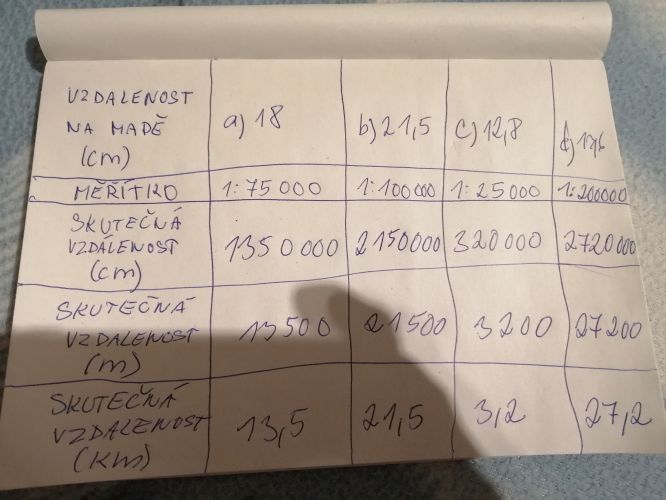 VZDALENOST
NA MADĚ
(cm)
a) 18
b) 21,5
c) 12,8
MĚŘÍTKO
1: 75 000
1: 100 000
1: 25 000
1: 200000
SKUTEČNÁ
VZDÁLENOST
(cm)
1350 000
2150000
320 000
2720 000
SKUTEČNÁ
VZDALENOST
(m)
13 500
21500
3200
27200
SKUTEČNÁ
VZDALENOST
(KM)
13,5
21,5
3,2
27,2